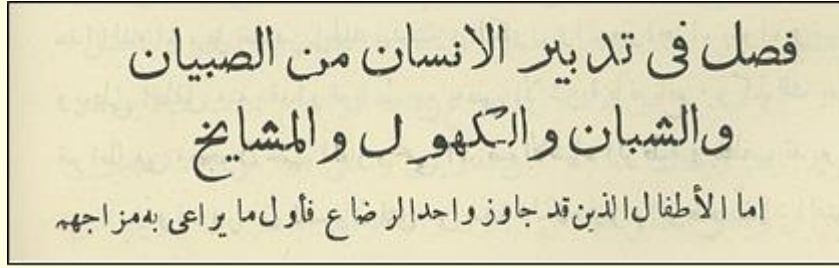 فصل فى تدبير الانسان من الصبيان
والشبان والكهول والمشايخ
اما الأطفال الذين قد جاوز واحد الرضاع فأول ما يراعى به مزاجهم